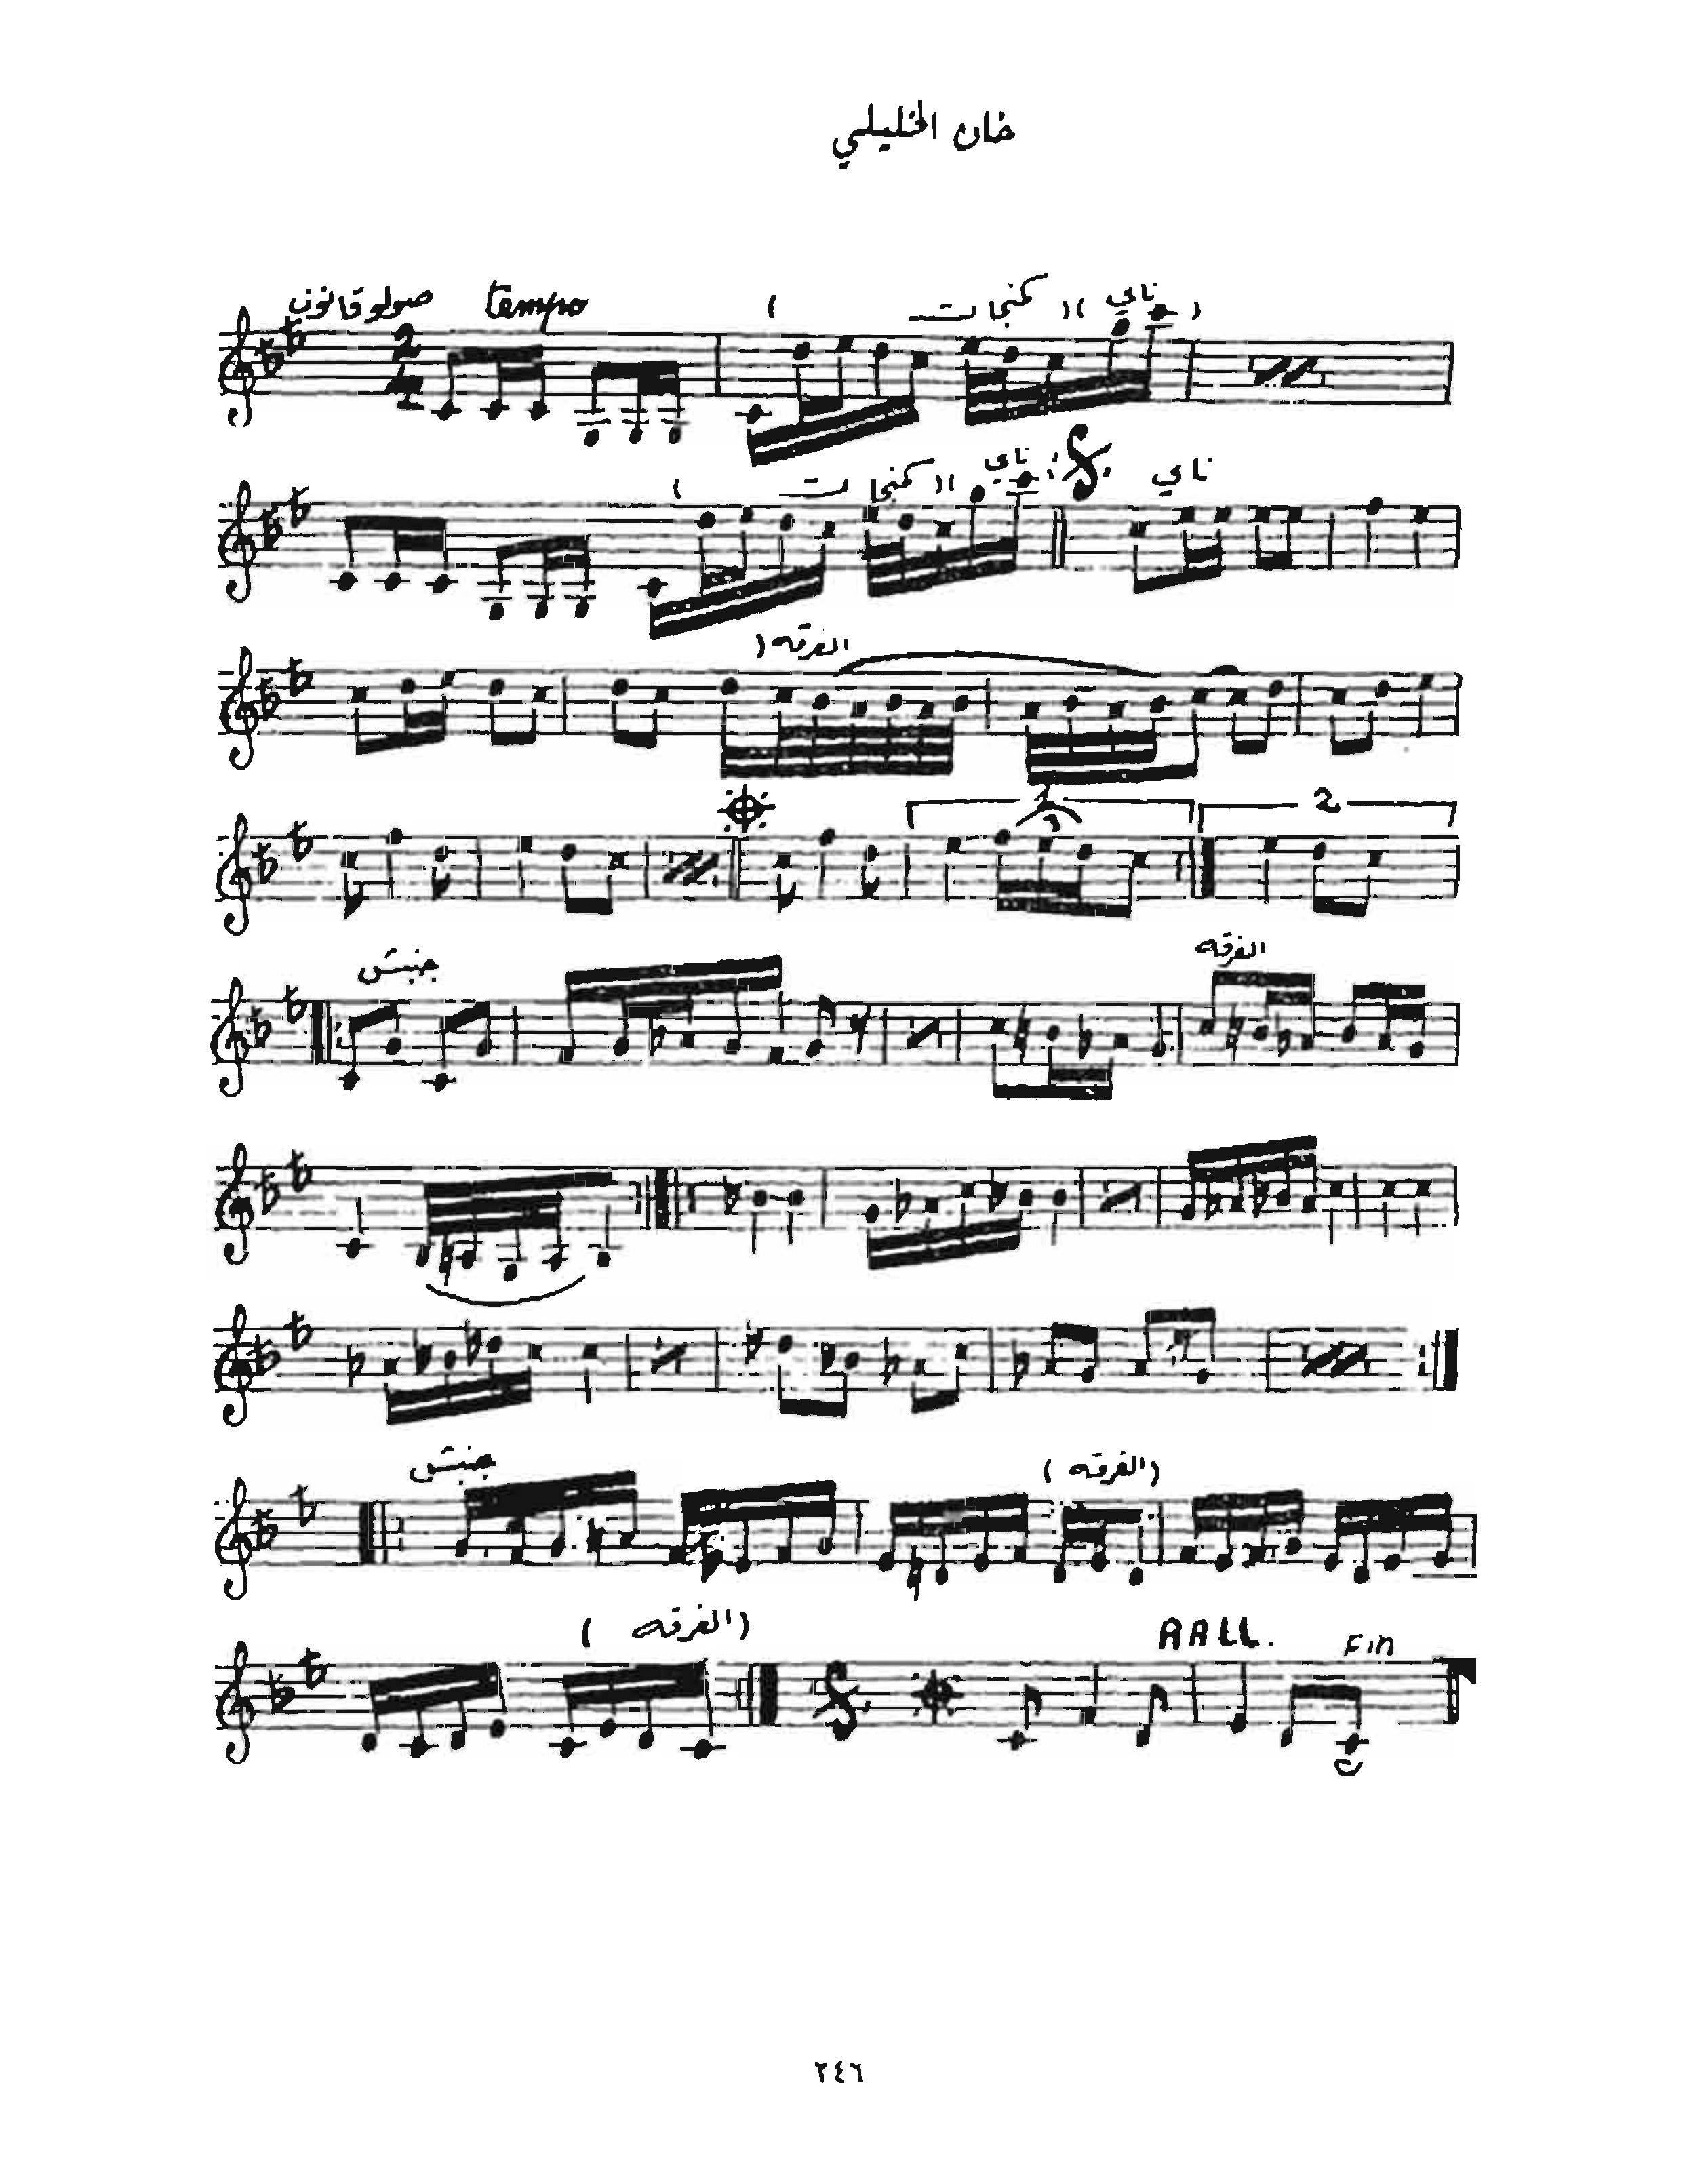 خان الخليلي
صولو قانون tempo ( كمنجات ) ( ناي )
2
4
( كمنجات ) ( ناي ) ناي
( الفرقه
1 3 2
جنبش الفرقه
جنبش ( الفرقه )
( الفرقه ) RALL. Fin
٢٤٦